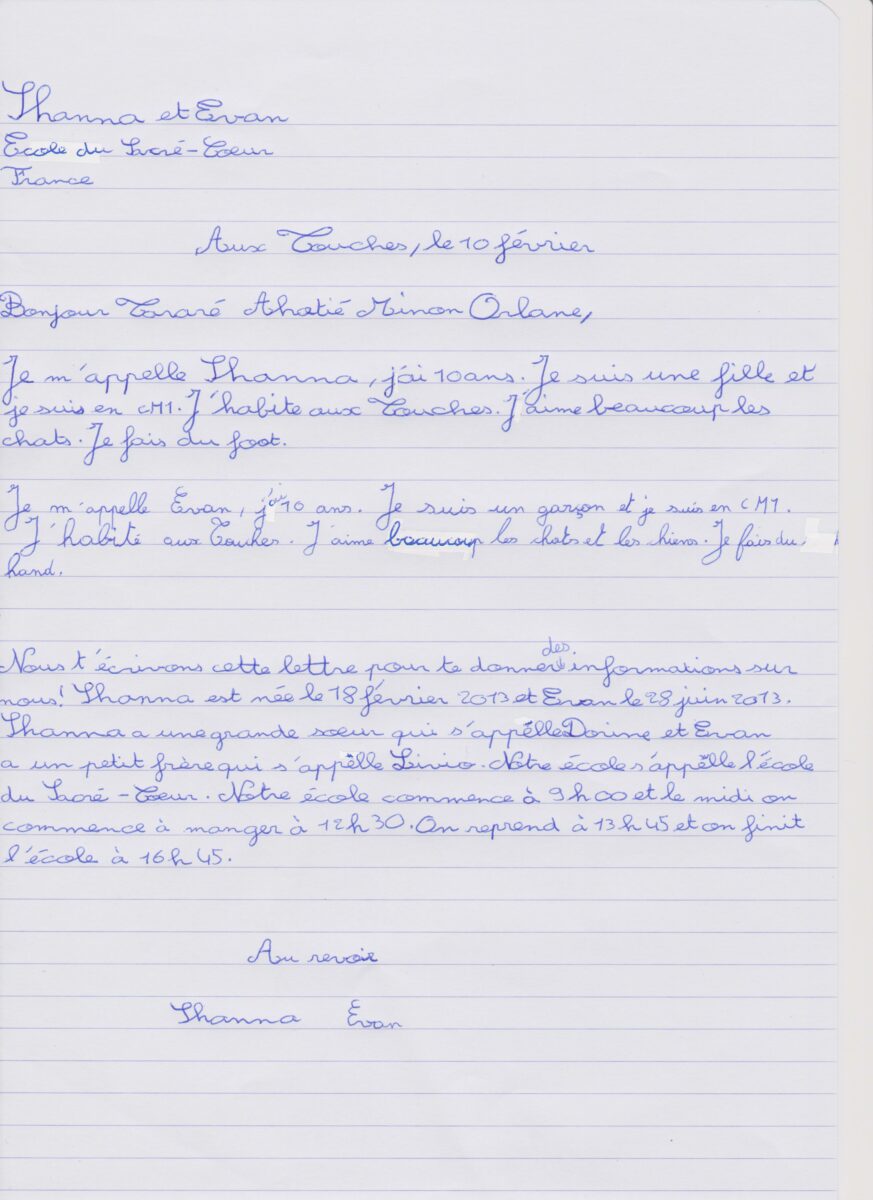 Shanna et Evan
Ecole du Sacré-Coeur
France
Aux Touches, le 10 février
Bonjour Tararé Ahatié Minon Orlane,
Je m'appelle Shanna, j'ai 10 ans. Je suis une fille et
je suis en CM1. J'habite aux Touches. J'aime beaucoup les
chats. Je fais du foot.
Je m'appelle Evan, j'ai 10 ans. Je suis un garçon et je suis en CM1.
J'habité aux Touches. J'aime beaucoup les chats et les hiens. Je fais du
hand.
Nous t'écrivons cette lettre pour te donner des informations sur
nous! Shanna est née le 18 février 2013 et Evan le 28 juin 2013.
Shanna a une grande soeur qui s'appèlle Dorine et Evan
a un petit frère qui s'appèlle Livio. Notre école s'appèlle l'école
du Sacré-Coeur. Notre école commence à 9h00 et le midi on
commence à manger à 12h30. On reprend à 13h45 et on finit
l'école à 16h45.
Au revoir
Shanna Evan